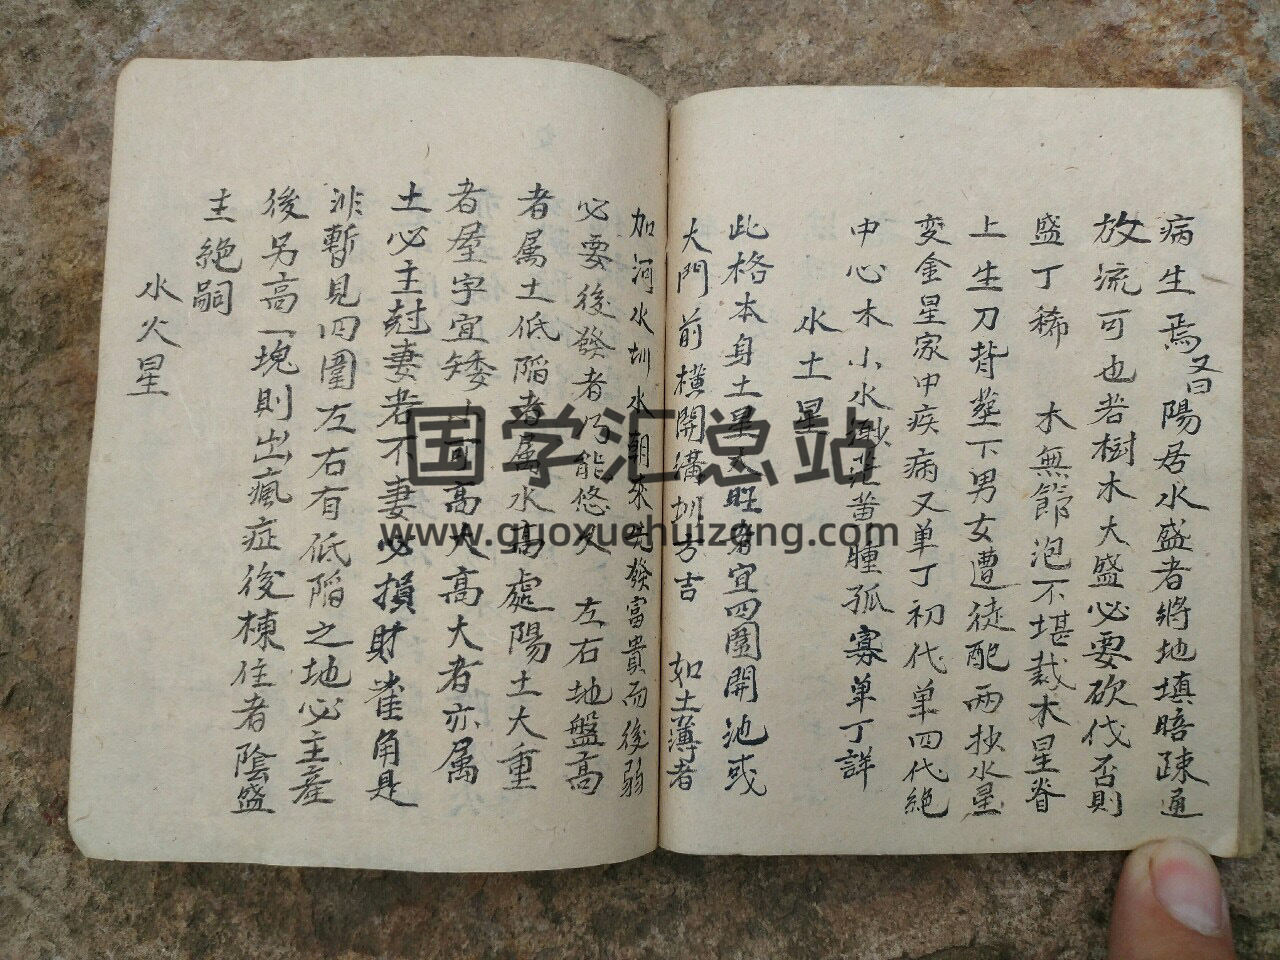 病生焉又曰陽居水盛者將地填暗疎通
放流可也若樹木大盛必要砍伐否則
盛丁稀 木無節泡不堪裁木星脊
上生刀背塟下男女遭徒配兩抄水星
变金星家中疾病又单丁初代单四代絕
中心木小水黄腫孤寡单丁詳
水土星
此格本身土星太旺者宜四圍開池或
大門前橫開溝圳方吉 如土薄者
加河水圳水朝來先發富貴而後弱
必要後發者乃能悠久 左右地盤高
者属土低陷者属水高處陽土大重
者屋宇宜矮可高大高大者亦属
土必主尅妻者不妻必損財雀角是
非暫見四圍左右有低陷之地必主產
後另高一塊則出瘋症後棟住者陰盛
主絕嗣
水火星
国学汇总站
www.guoxuehuizong.com